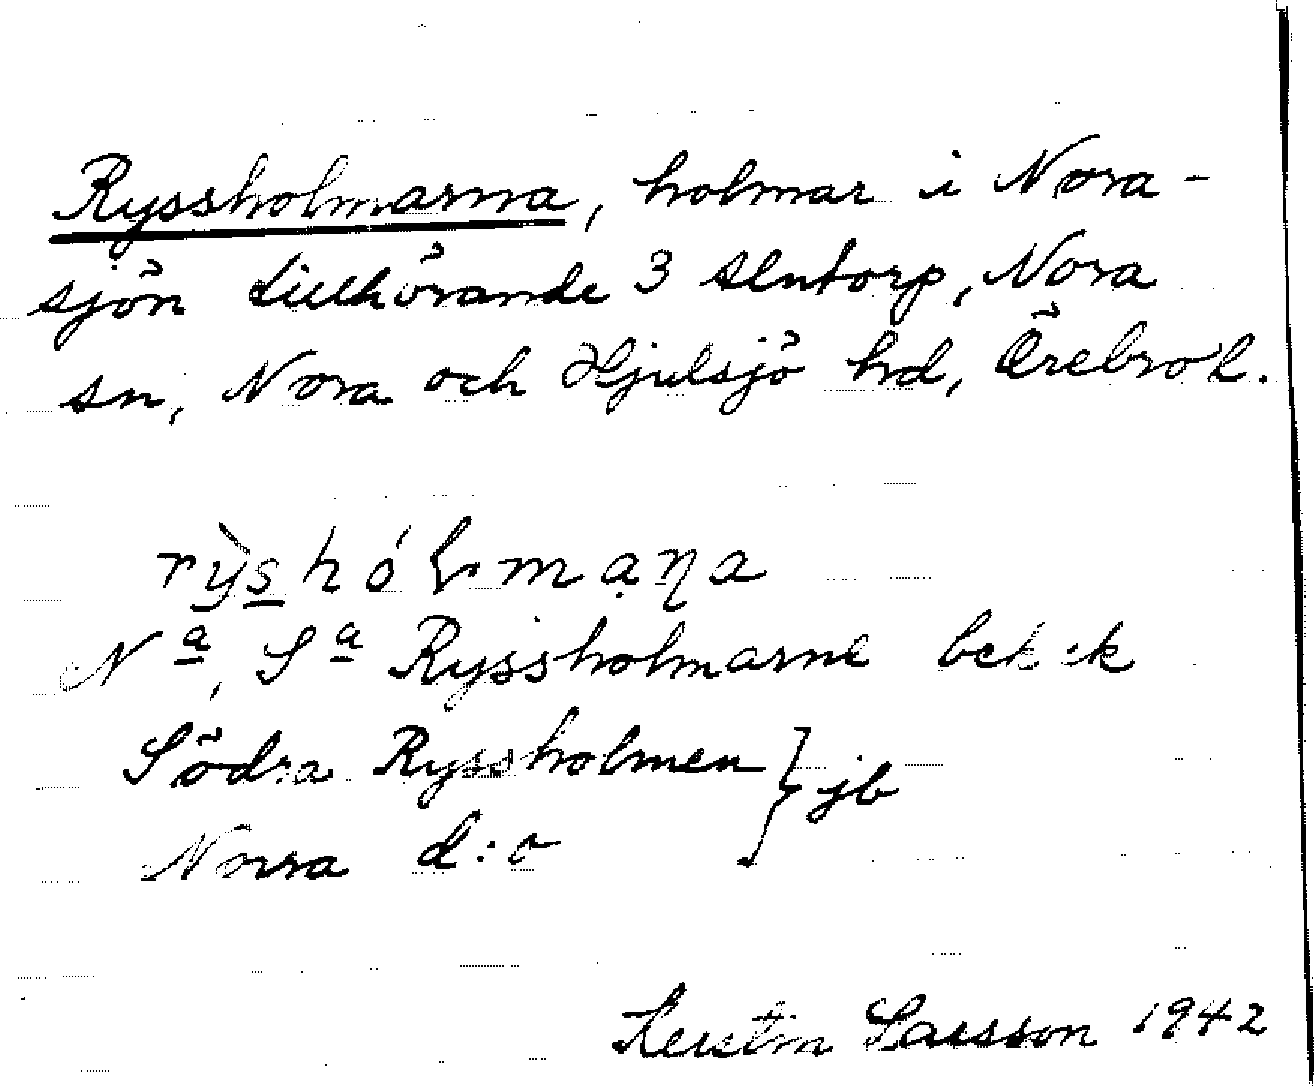 Ryssholmarna, holmar i Nora-
sjön tillhörande 3 Alntorp, Nora
sn, Nora och Hjulsjö hrd, Örebro l.
rỳshólmaṇa
Nª, Sª Ryssholmarne bek ek
Södra Ryssholmen } jb
Norra d:o
Kerstin Larsson 1942